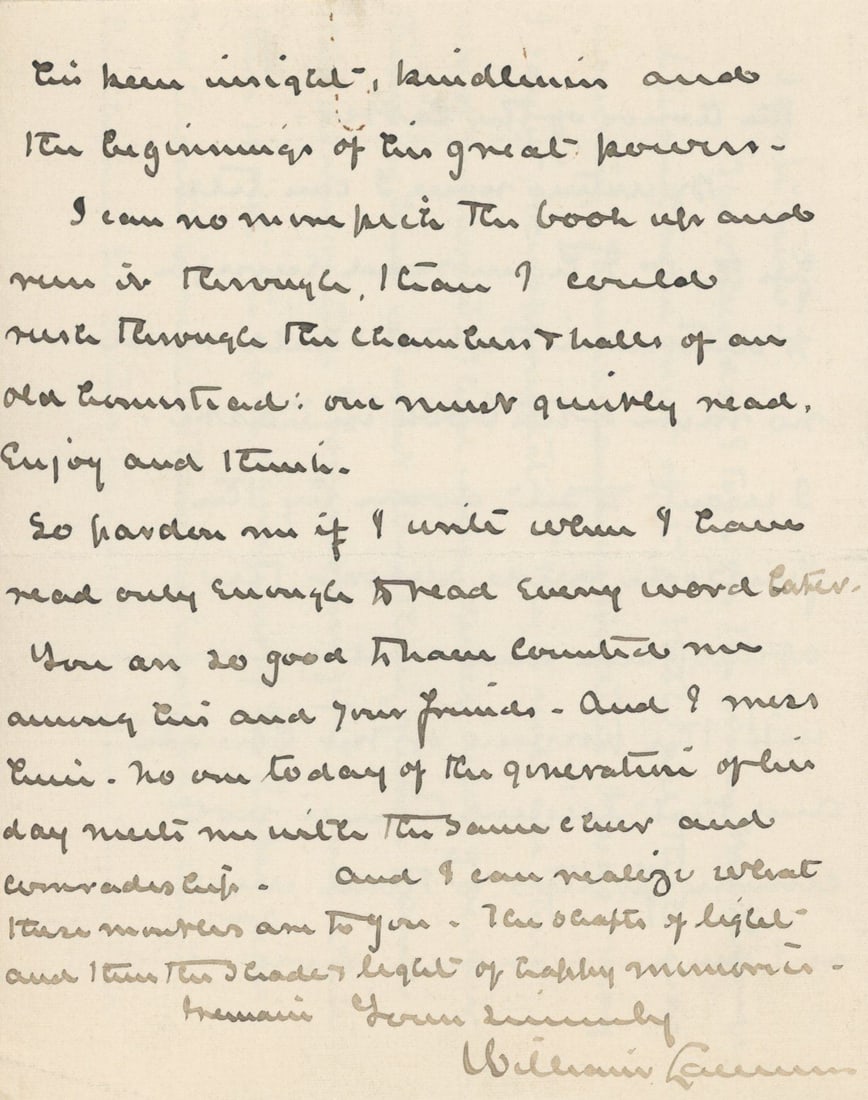 his keen insight, kindliness and
the beginnings of his great powers -
I can no more pick the book up and
run it through, than I could
rush through the chambers & halls of an
old homestead: one must quietly read,
Enjoy and think.
So pardon me if I write when I have
read only Enough to read Every word later.
You are so good to have counted me
among his and your friends - And I miss
him. No one today of the generation of his
day meets me with the same cheer and
comradeship. And I can realize what
these months are to you. The shafts of light
and then the shade & light of happy memories -
I remain Yours sincerely
William